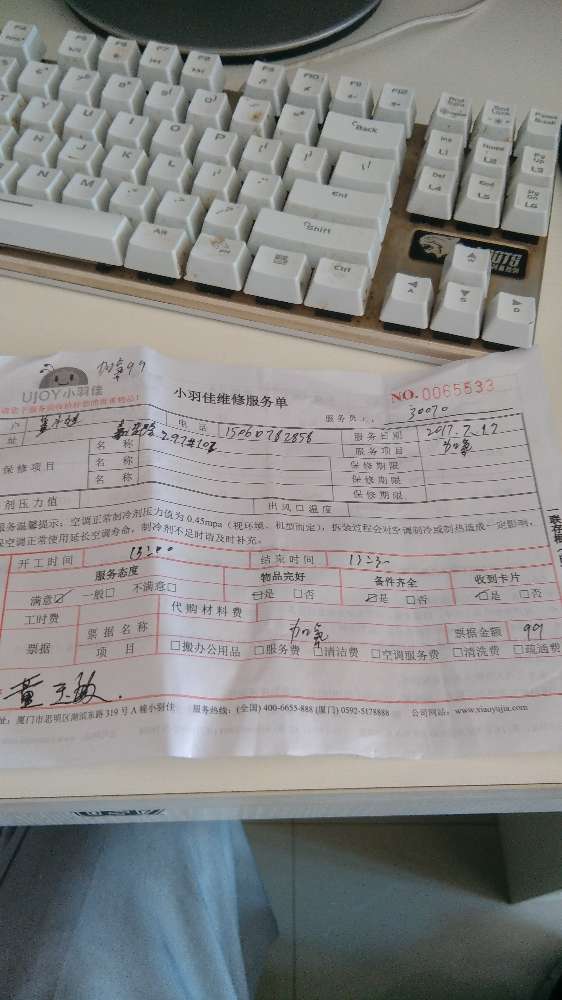 F5
F6
F7
F8
F9
F10
F11
F12
Pause
Break
Back
Y U I O P
Ins
L1
L2
Pg
Up
L3
H J K L
Ent
Del
L4
End
L5
Pg
Dn
L6
N M
Shift
Alt
Fn
Ctrl
W
A
S
D
加氟99
UJOY小羽佳
小羽佳维修服务单
NO. 0065533
服务员
30070
户
电 话
15060782856
服务日期
2017.7.17
址
297#102
服务项目
加氟
保修项目
名 称
保修期限
名 称
保修期限
名 称
保修期限
剂压力值
出风口温度
服务温馨提示：空调正常制冷剂压力值为0.45mpa（视环境、机型而定），拆装过程会对空调制冷或制热造成一定影响，
保空调正常使用延长空调寿命，制冷剂不足时请及时补充。
开工时间
结束时间
服务态度
物品完好
备件齐全
收到卡片
满意☑ 一般□ 不满意□
☑是 □否
☑是 □否
☑是 □否
工时费
代购材料费
票据
票据名称
加氟
票据金额
99
项 目
□搬办公用品 □服务费 □清洁费 □空调服务费 □清洗费 □疏通费
址：厦门市思明区湖滨东路319号A幢小羽佳 服务热线：(全国) 400-6655-888 (厦门) 0592-5178888 公司网站：www.xiaoyujia.com